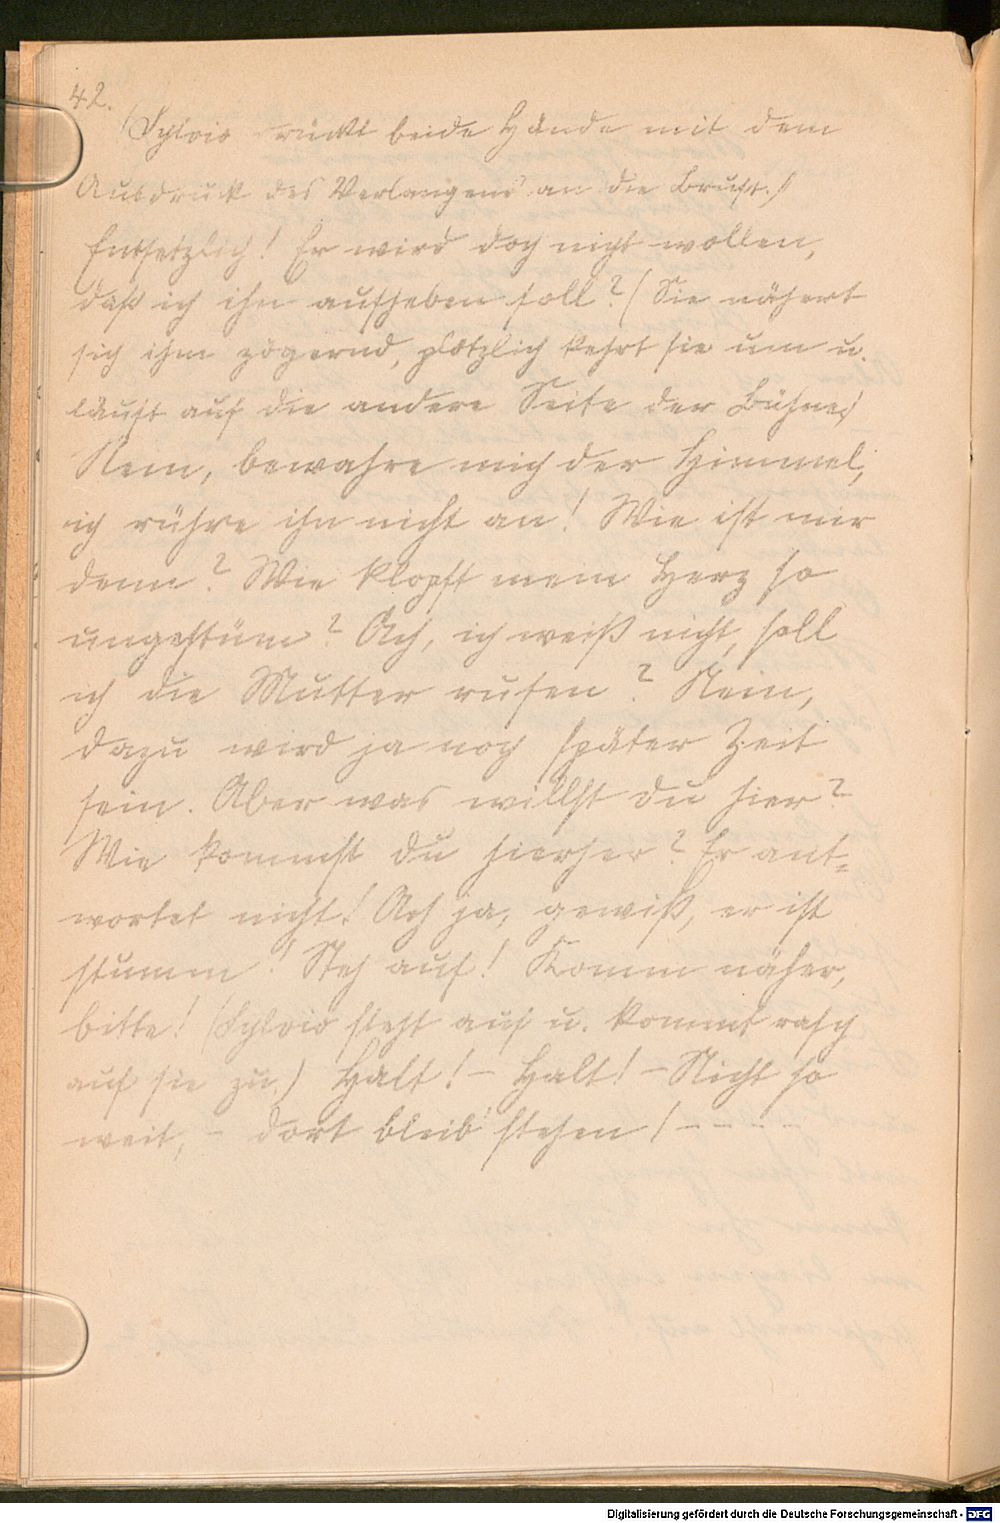 42.
(Sylvio drückt beide Hände mit dem
Ausdruck des Verlangens an die Brust.)
Entsetzlich! Er wird doch nicht wollen,
daß ich ihn aufheben soll? (Sie nähert
sich ihm zögernd, plötzlich kehrt sie um u.
läuft auf die andere Seite der Bühne)
Nein, bewahre mich der Himmel,
ich rühre ihn nicht an! Wie ist mir
denn? Wie klopft mein Herz so
ungestüm? Ach, ich weiß nicht, soll
ich die Mutter rufen? Nein,
dazu wird ja noch später Zeit
sein. Aber was willst du hier?
Wie kommst du hierher? Er ant=
wortet nicht! Ach ja, gewiß, er ist
stumm! Steh auf! Komm näher,
bitte! (Sylvio steht auf u. kommt rasch
auf sie zu.) Halt! – Halt! – Nicht so
weit, – dort bleib' stehen! – – – – –
Digitalisierung gefördert durch die Deutsche Forschungsgemeinschaft - DFG